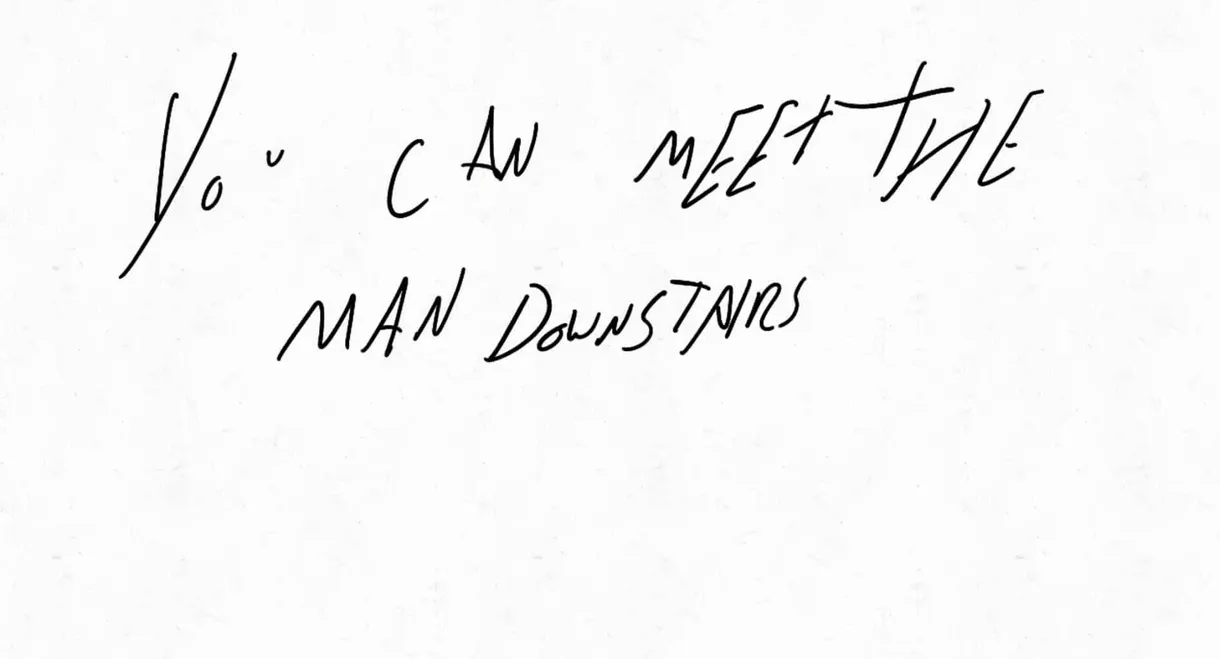 You CAN MEET THE
MAN DOWNSTAIRS